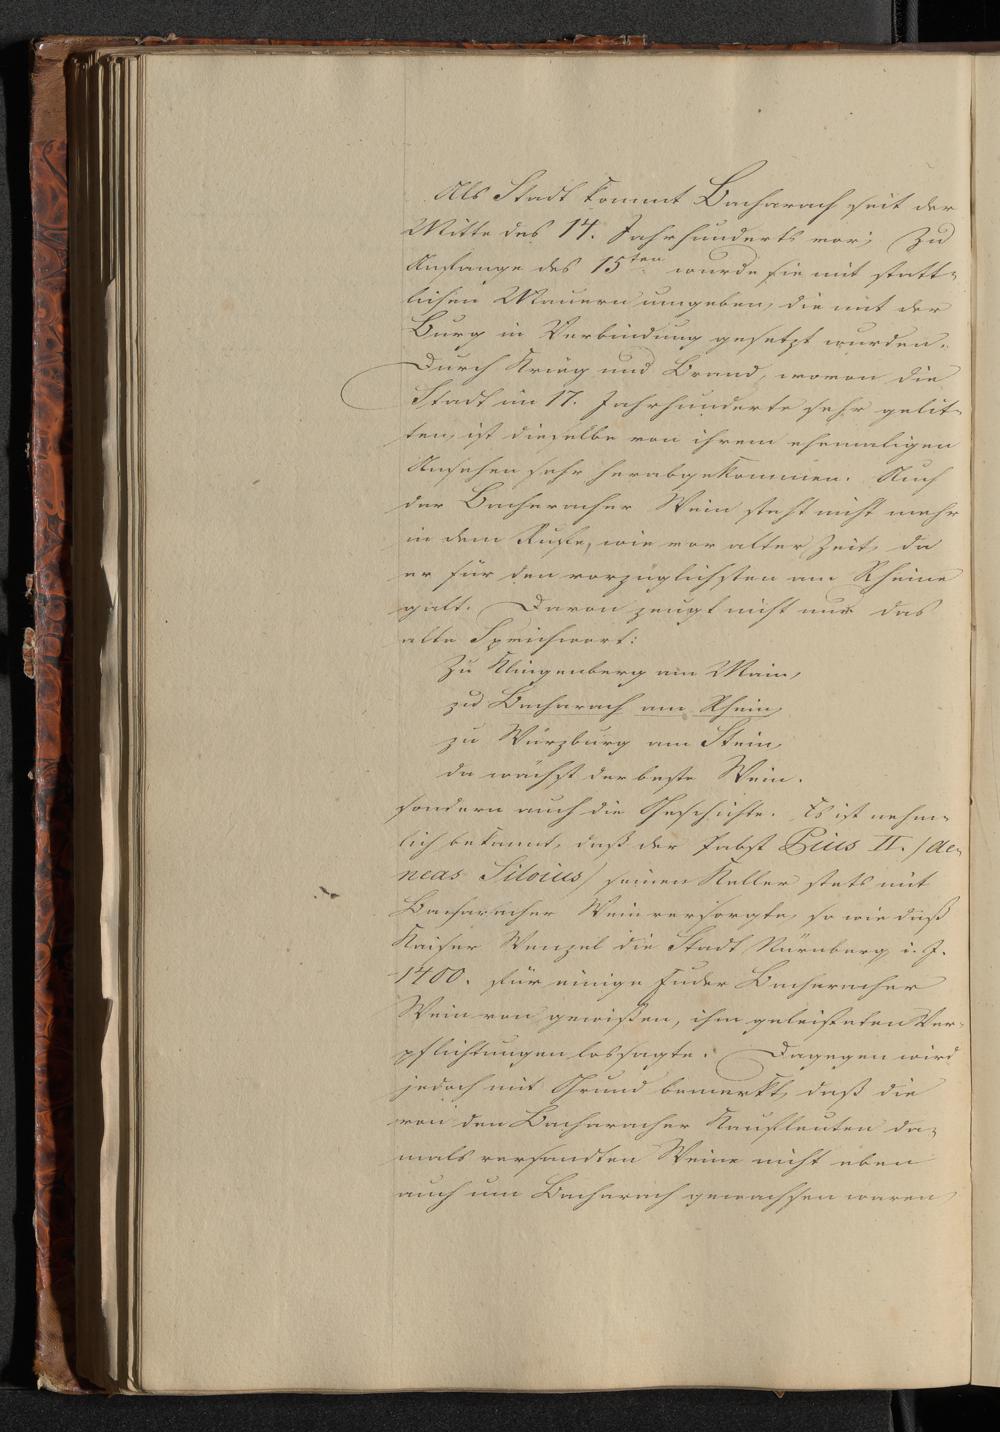 Als Stadt kommt Bacharach seit der
Mitte des 14. Jahrhunderts vor; Zu
Anfange des 15ten wurde sie mit statt-
lichen Mauern umgeben, die mit der
Burg in Verbindung gesetzt wurden.
Durch Krieg und Brand, wovon die
Stadt im 17. Jahrhunderte sehr gelit-
ten, ist dieselbe von ihrem ehemaligen
Ansehen sehr herabgekommen. Auch
der Bacheracher Wein steht nicht mehr
in dem Rufe, wie vor alter Zeit, da
er für den vorzüglichsten am Rheine
galt. Davon zeugt nicht nur das
alte Sprichwort:
Zu Klingenberg am Main,
zu Bacharach am Rhein,
zu Würzburg am Stein,
da wächst der beste Wein.
sondern auch die Geschichte. Es ist nehm-
lich bekannt, daß der Pabst Pius II. (Ae-
neas Silvius) seinen Keller stets mit
Bacharacher Wein versorgte, so wie daß
Kaiser Wenzel die Stadt Nürnberg i. J.
1400. für einige Fuder Bacheracher
Wein von gewißen, ihm geleisteten Ver-
pflichtungen lossagte. Dagegen wird
jedoch mit Grund bemerkt, daß die
von den Bacharacher Kaufleuten da-
mals versandten Weine nicht eben
auch um Bacharach gewachsen waren,